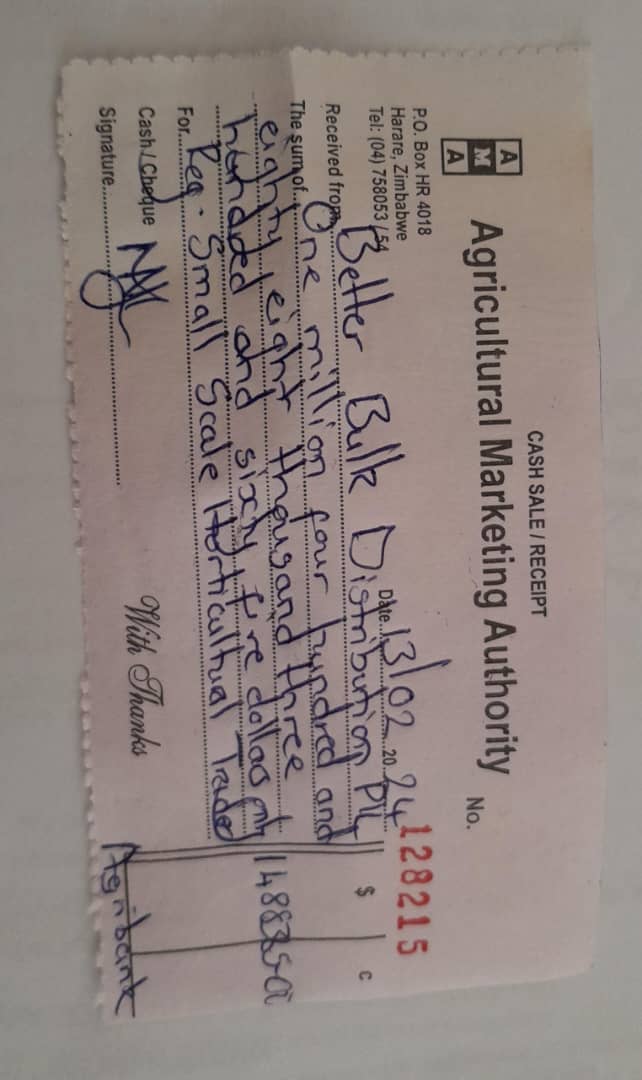 CASH SALE / RECEIPT
A M A
Agricultural Marketing Authority
No. 128215
P.O. Box HR 4018
Harare, Zimbabwe
Tel: (04) 758053 / 54
Date 13/02 20 24
Received from Better Bulk Distribution P/L
The sum of One million four hundred and
eighty eight thousand three
hundred and sixty five dollars only
For Reg. Small Scale Horticultural Trader
$ c
Cash / Cheque
Signature
With Thanks
Agribank